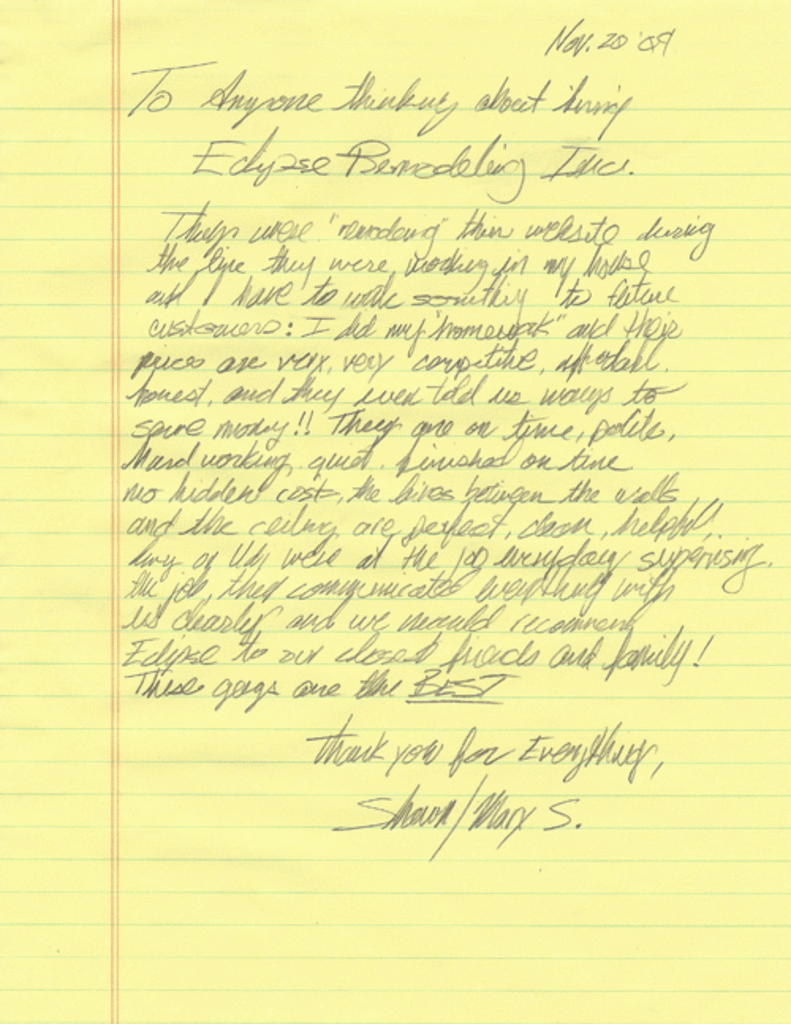 Nov. 20 '09
To Anyone thinking about hiring
Eclipse Remodeling Inc.
They were "remodeling" their website during
the time they were working in my house
and I have to write something to future
customers: I did my "homework" and their
prices are very, very competitive, affordable.
honest, and they even told us ways to
save money!! They are on time, polite,
Hard working, quiet. Finished on time
no hidden costs, the lines between the walls
and the ceiling are perfect, clean, helpful!.
of were at the job everyday supervising.
the job, they communicated everything with
us clearly and we would recommend
Eclipse to our closest friends and family!
These guys are the BEST
Thank you for Everything,
Shawn/Mary S.